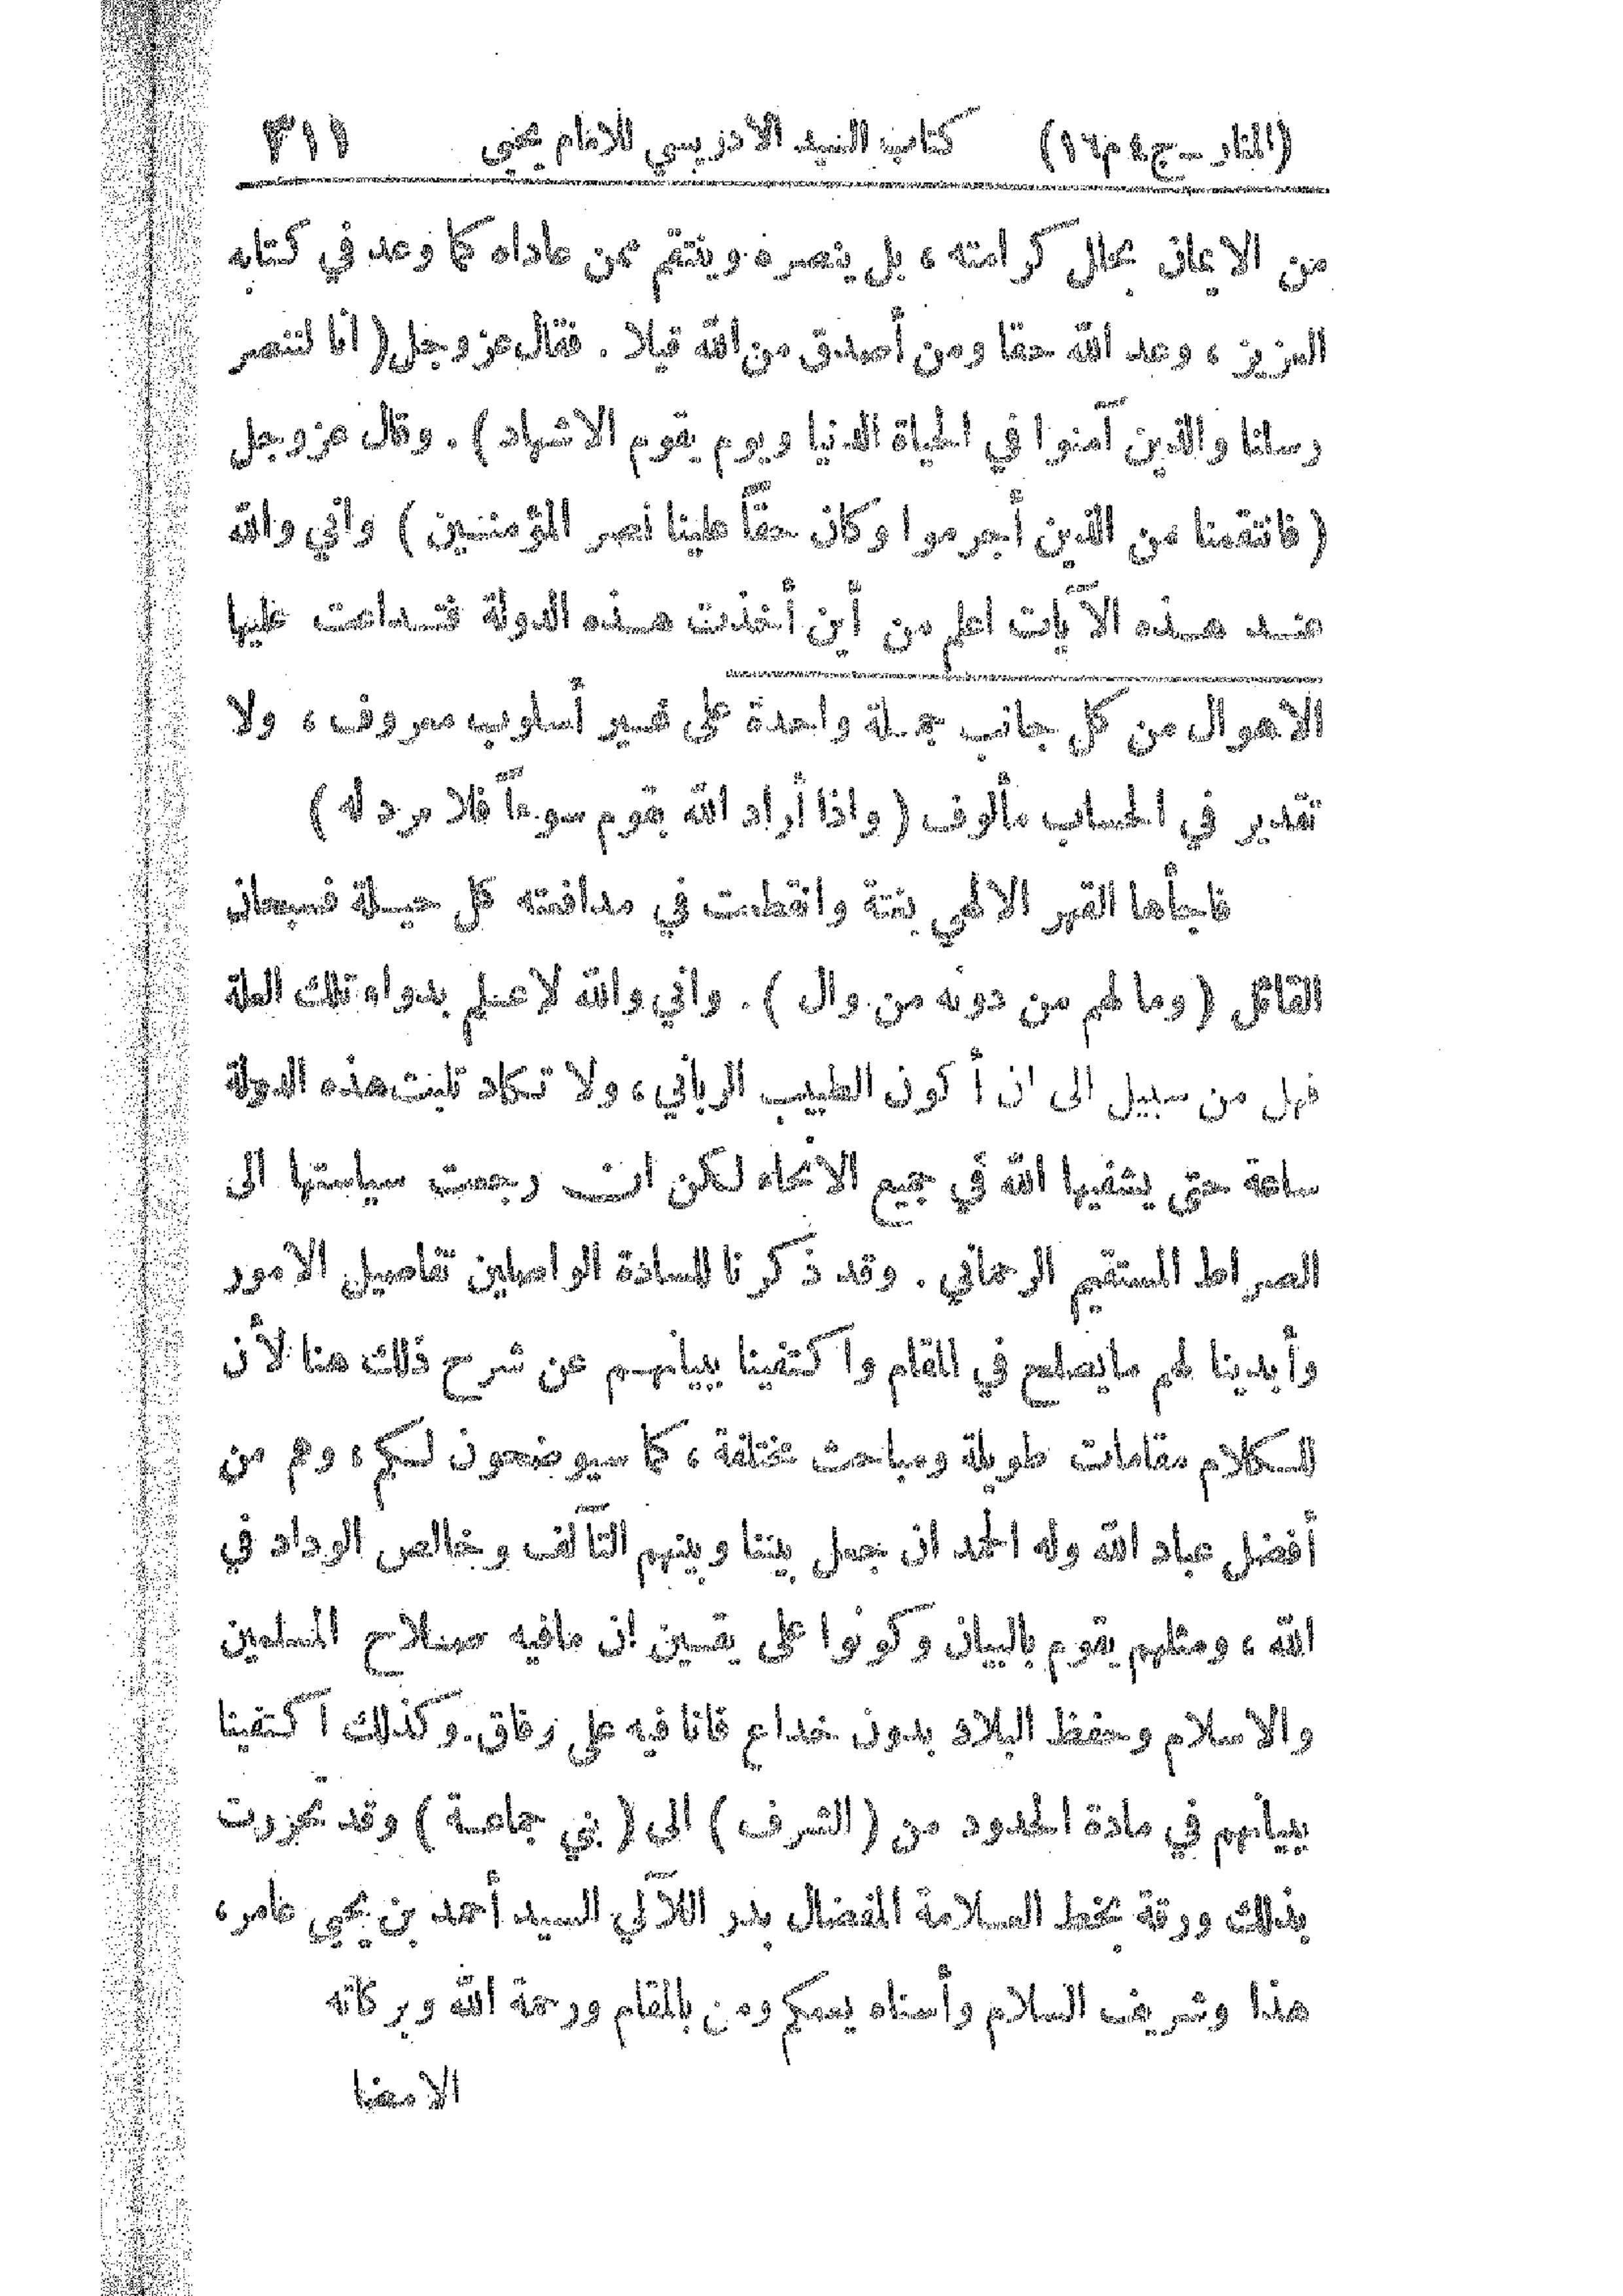 (المنار ـ ج٤ م١٦) كتاب السيد الادريسي للامام يحيى ٣١١
من الايمان بحال كرامته ، بل ينصره وينتقم ممن عاداه كما وعد في كتابه
العزيز ، وعد الله حقا ومن أصدق من الله قيلا . فقال عز وجل ( انا لننصر
رسلنا والذين آمنوا في الحياة الدنيا ويوم يقوم الاشهاد ) . وقال عز وجل
( فانتقمنا من الذين أجرموا وكان حقاً علينا نصر المؤمنين ) واني والله
عند هذه الآيات اعلم من أين أخذت هذه الدولة فتداعت عليها
الاهوال من كل جانب جملة واحدة على غير أسلوب معروف ، ولا
تقدير في الحساب مألوف ( واذا أراد الله بقوم سوءاً فلا مرد له )
فاجأها القهر الالهي بغتة وانقطعت في مدافعته كل حيلة فسبحان
القائل ( وما لهم من دونه من وال ) . واني والله لاعلم بدواء تلك العلة
فهل من سبيل الى ان أكون الطبيب الرباني ، ولا تكاد تلبث هذه الدولة
ساعة حتى يشفيها الله في جميع الانحاء لكن ان رجعت سياستها الى
الصراط المستقيم الرحماني . وقد ذكرنا للسادة الواصلين تفاصيل الامور
وأبدينا لهم مايصلح في المقام واكتفينا ببيانهم عن شرح ذلك هنا لأن
للكلام مقامات طويلة ومباحث مختلفة ، كما سيوضحون لكم ، وهم من
أفضل عباد الله وله الحمد ان جعل بيننا وبينهم التآلف وخالص الوداد في
الله ، ومثلهم يقوم بالبيان وكونوا على يقين ان مافيه صلاح المسلمين
والاسلام وحفظ البلاد بدون خداع فانا فيه على رفاق . وكذلك اكتفينا
ببيانهم في مادة الحدود من ( الشرف ) الى ( بني جماعة ) وقد تحررت
بذلك ورقة بخط العلامة المفضال بدر اللآلي السيد أحمد بن يحيى عامر ،
هذا وشريف السلام وأسناه يعمكم ومن بالمقام ورحمة الله وبركاته
الامضا